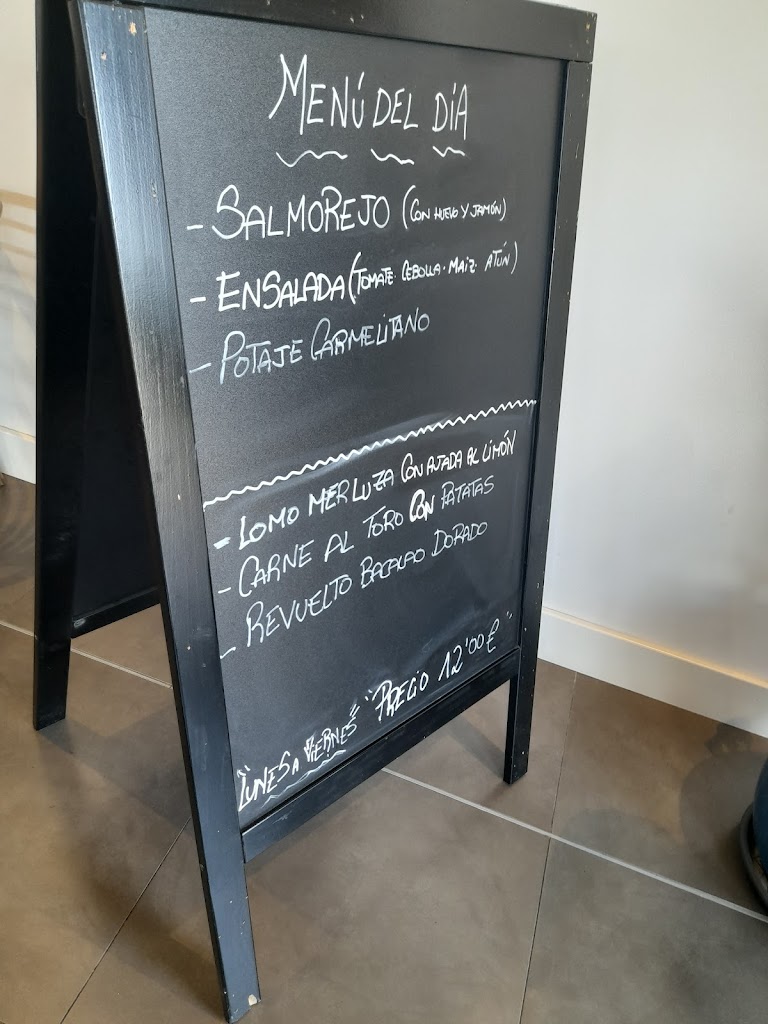 MENÚ DEL DÍA
- SALMOREJO (CON HUEVO Y JAMÓN)
- ENSALADA (TOMATE · CEBOLLA · MAIZ · ATÚN)
- POTAJE CARMELITANO
- LOMO MERLUZA CON AJADA AL LIMÓN
- CARNE AL TORO CON PATATAS
- REVUELTO BACALAO DORADO
"LUNES A VIERNES" "PRECIO 12'00 €"